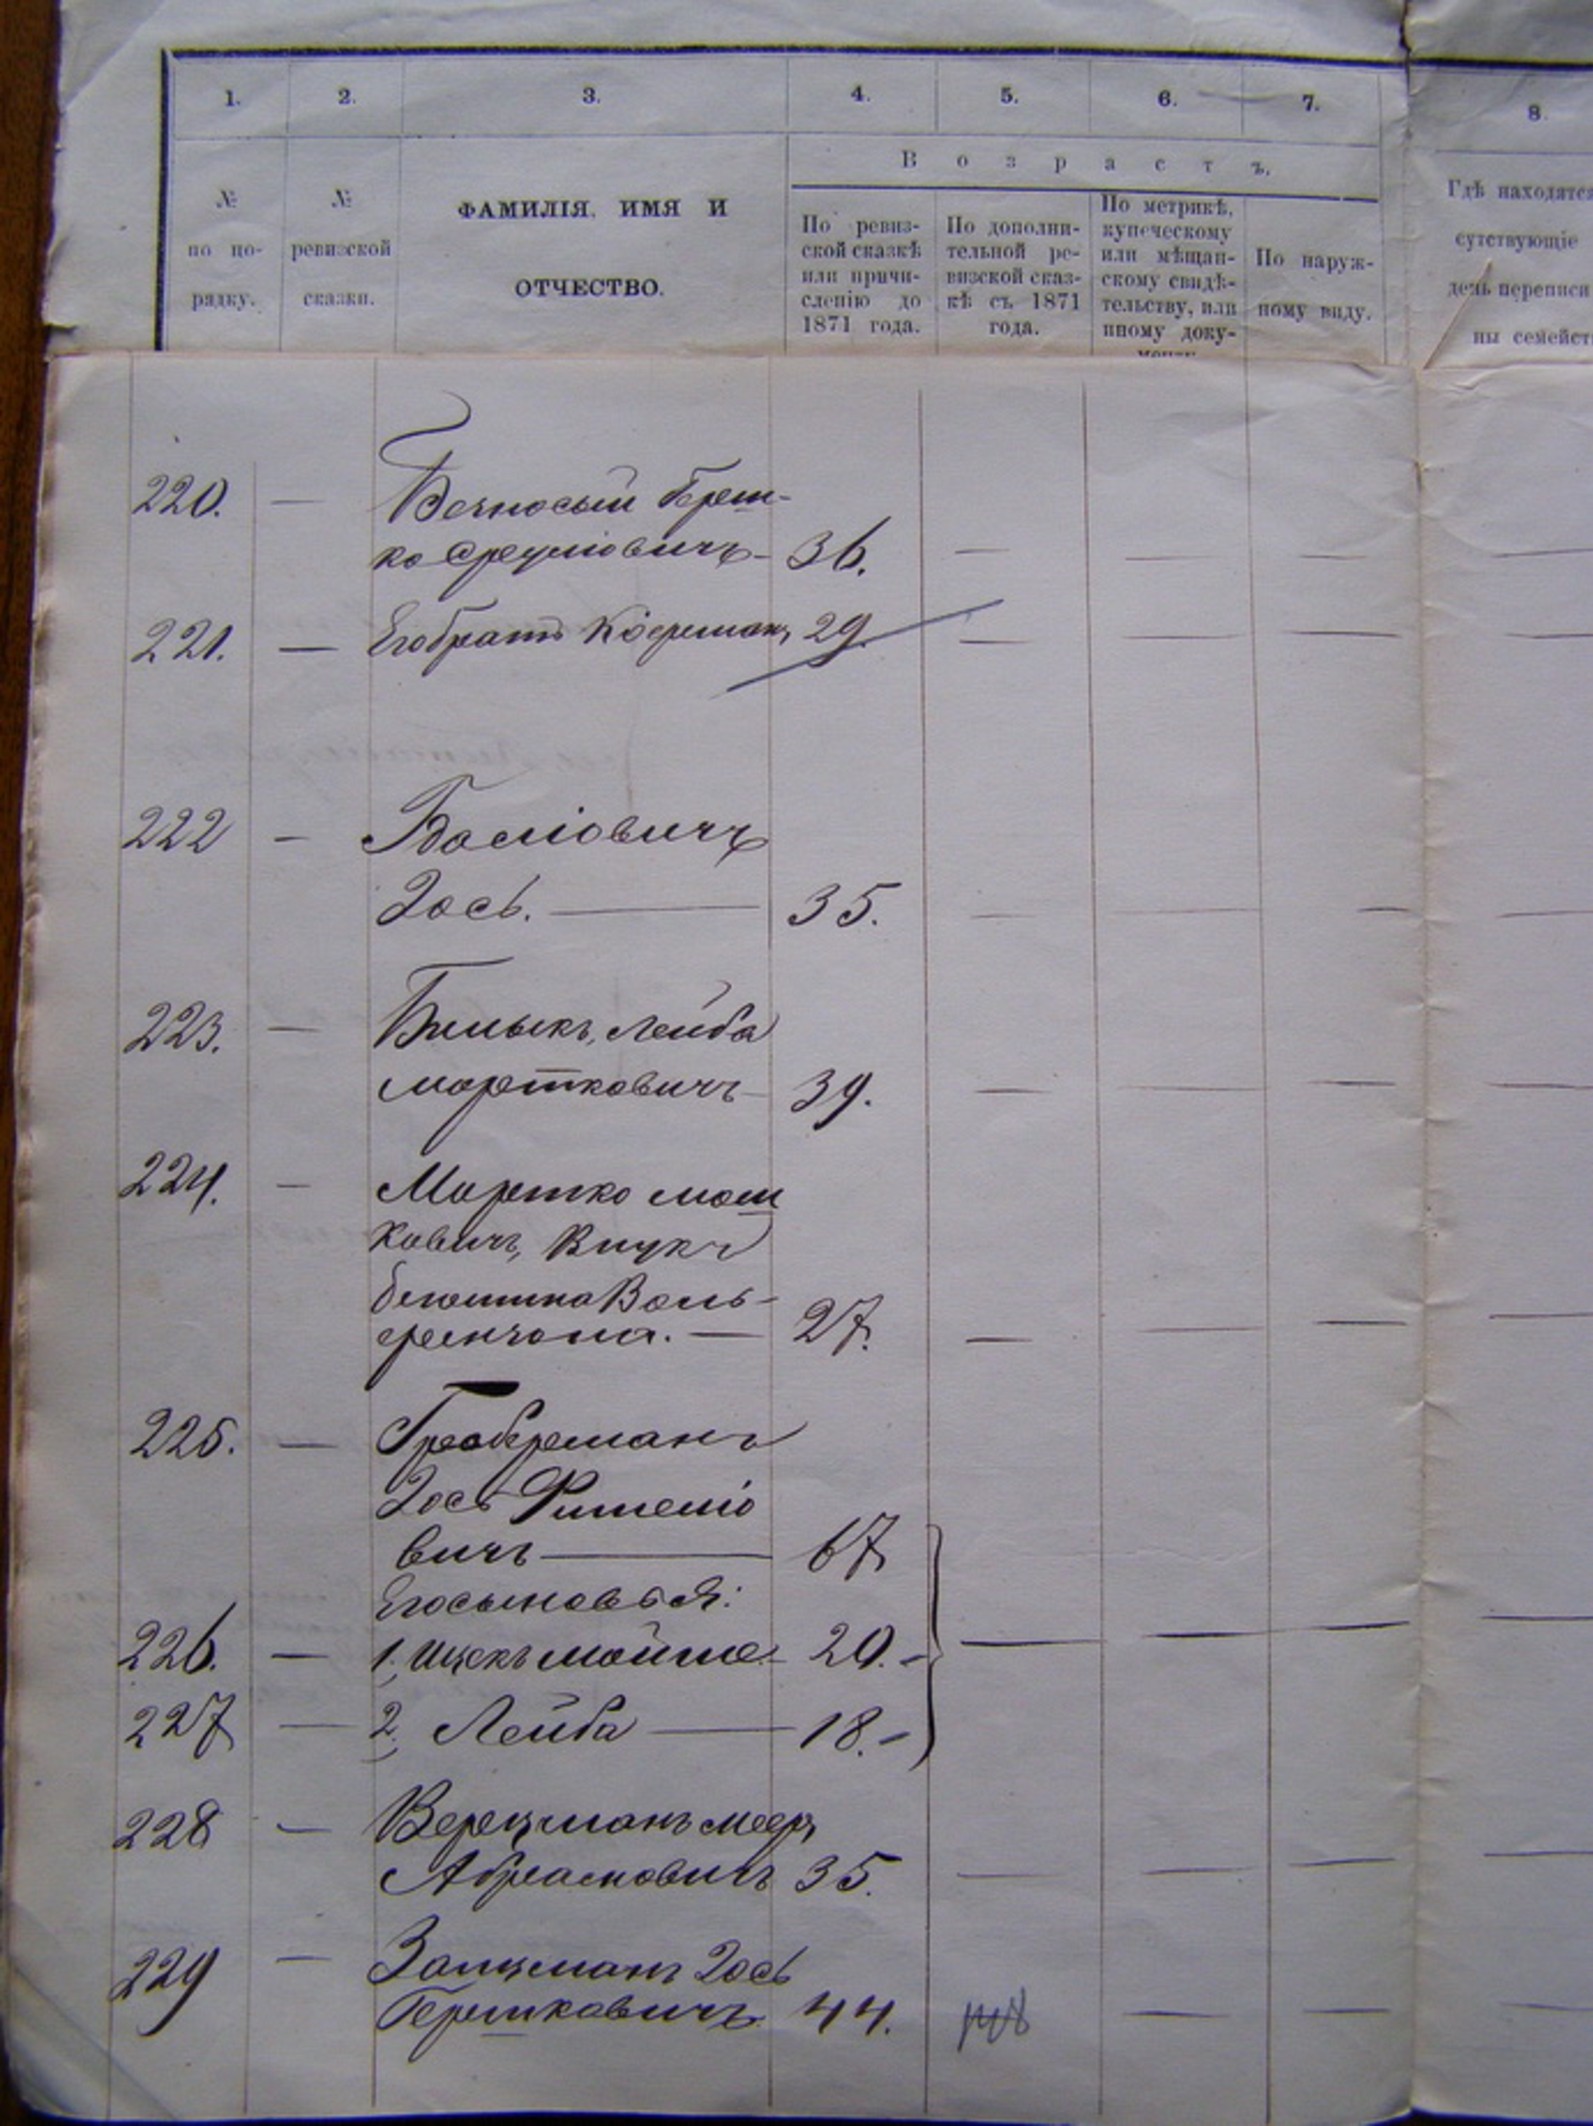 1. 2. 3. 4. 5. 6. 7. 8.
Возрастъ.
№ по по-рядку.
№ ревизской сказки.
ФАМИЛІЯ, ИМЯ И
ОТЧЕСТВО.
По ревиз-
ской сказкѣ
или причи-
сленію до
1871 года.
По дополни-
тельной ре-
визской сказ-
кѣ съ 1871
года.
По метрикѣ,
купеческому
или мѣщан-
скому свидѣ-
тельству, или
иному доку-
По наруж-
ному виду.
Гдѣ находятся
сутствующіе
день переписи
ны семейст
220. —
ко 36. — — — —
221. — Его братъ 29. — — — —
222 —
Іось. — 35. — — — —
223. — Лейба
Мортковичъ — 39. — — — —
224. — Мортко Мош
ковичъ, Внукъ
27. — — — —
225. —
Іось
вичъ — 67
Его сыновья:
226. — 1, Ицекъ Мойше — 20. — — — — —
227 — 2, Лейба — 18. —
228 — Верецманъ Меер
Абрамовичъ 35. — — — —
229 — Залцманъ Іось
Гершковичъ 44. — — —